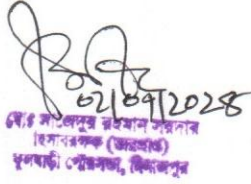 02/09/2028
মোঃ সাজেদুর রহমান সরদার
হিসাবরক্ষক (অঃদাঃ)
ফুলবাড়ী পৌরসভা, দিনাজপুর